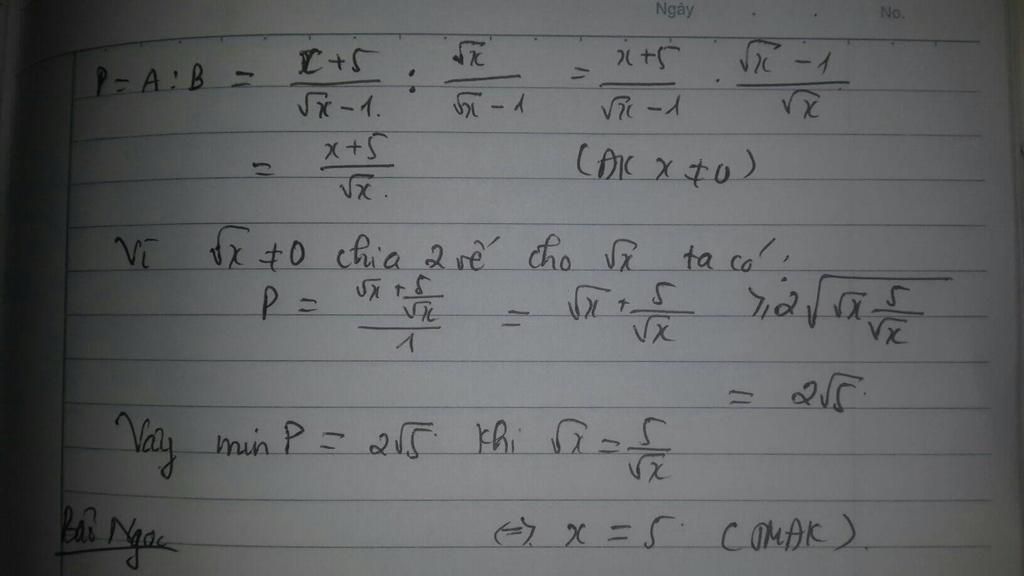 Ngày . . No.
P = A : B = x+5/√x-1 : √x/√x-1 = x+5/√x-1 . √x-1/√x
= x+5/√x (ĐK x ≠ 0)
Vì √x ≠ 0 chia 2 vế cho √x ta có:
P = (√x + 5/√x)/1 = √x + 5/√x ≥ 2√(√x 5/√x)
= 2√5
Vậy min P = 2√5 khi √x = 5/√x
Bảo Ngọc ⇔ x = 5 (TMĐK).